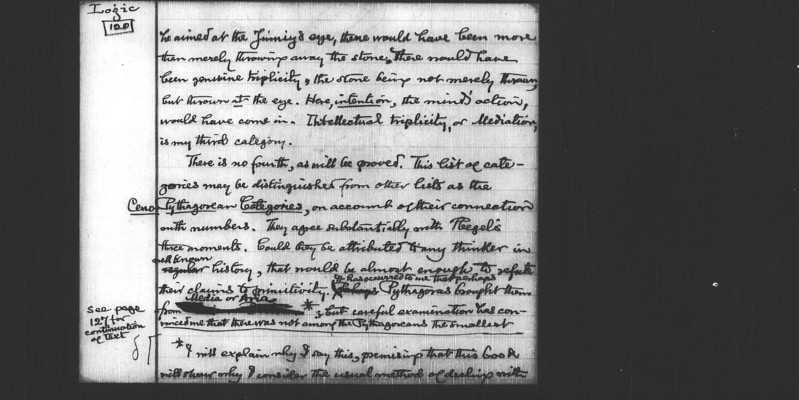 Logic
120
he aimed at the Jinniy's eye, there would have been more
than merely throwing away the stone, there would have
been genuine triplicity, the stone being not merely thrown,
but thrown at the eye. Here, intention, the mind's action,
would have come in. Intellectual triplicity, or Mediation,
is my third category.
There is no fourth, as will be proved. This list of cate-
gories may be distinguished from other lists as the
Ceno-Pythagorean Categories, on account of their connection
with numbers. They agree substantially with Hegel's
three moments. Could they be attributed to any thinker in
well known
regular history, that would be almost enough to refute
It has occurred to me that perhaps
their claims to primitivity. Perhaps Pythagoras brought them
Media or Aria
from * ; but careful examination has con-
vinced me that there was not among the Pythagoreans the smallest
see page
127 for
continuation
of text
* I will explain why I say this, premising that this book
will show why I consider the usual method of dealing with